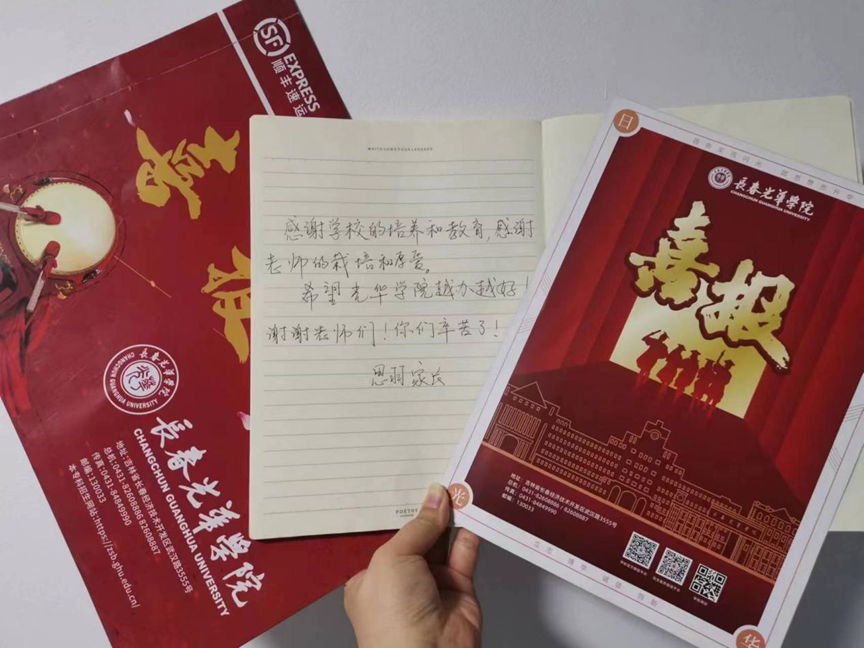 SF EXPRESS
顺丰速运
喜报
長春光華學院
CHANGCHUN GUANGHUA UNIVERSITY
長春光華學院
CHANGCHUN GUANGHUA UNIVERSITY
地址:吉林省长春经济技术开发区武汉路3555号
总机:0431-82608886 82608887
传真:0431-84849990
邮编:130033
本专科招生网站:https://zsb.ghu.edu.cn/
感谢学校的培养和教育,感谢
老师的栽培和厚爱。
希望光华学院越办越好!
谢谢老师们!你们辛苦了!
思羽家长
POETRY
日
長春光華學院
CHANGCHUN GUANGHUA UNIVERSITY
喜报
地址:吉林省长春经济技术开发区武汉路3555号
总机:0431-82608886 / 82608887
传真:0431-84849990
邮编:130033
光
华